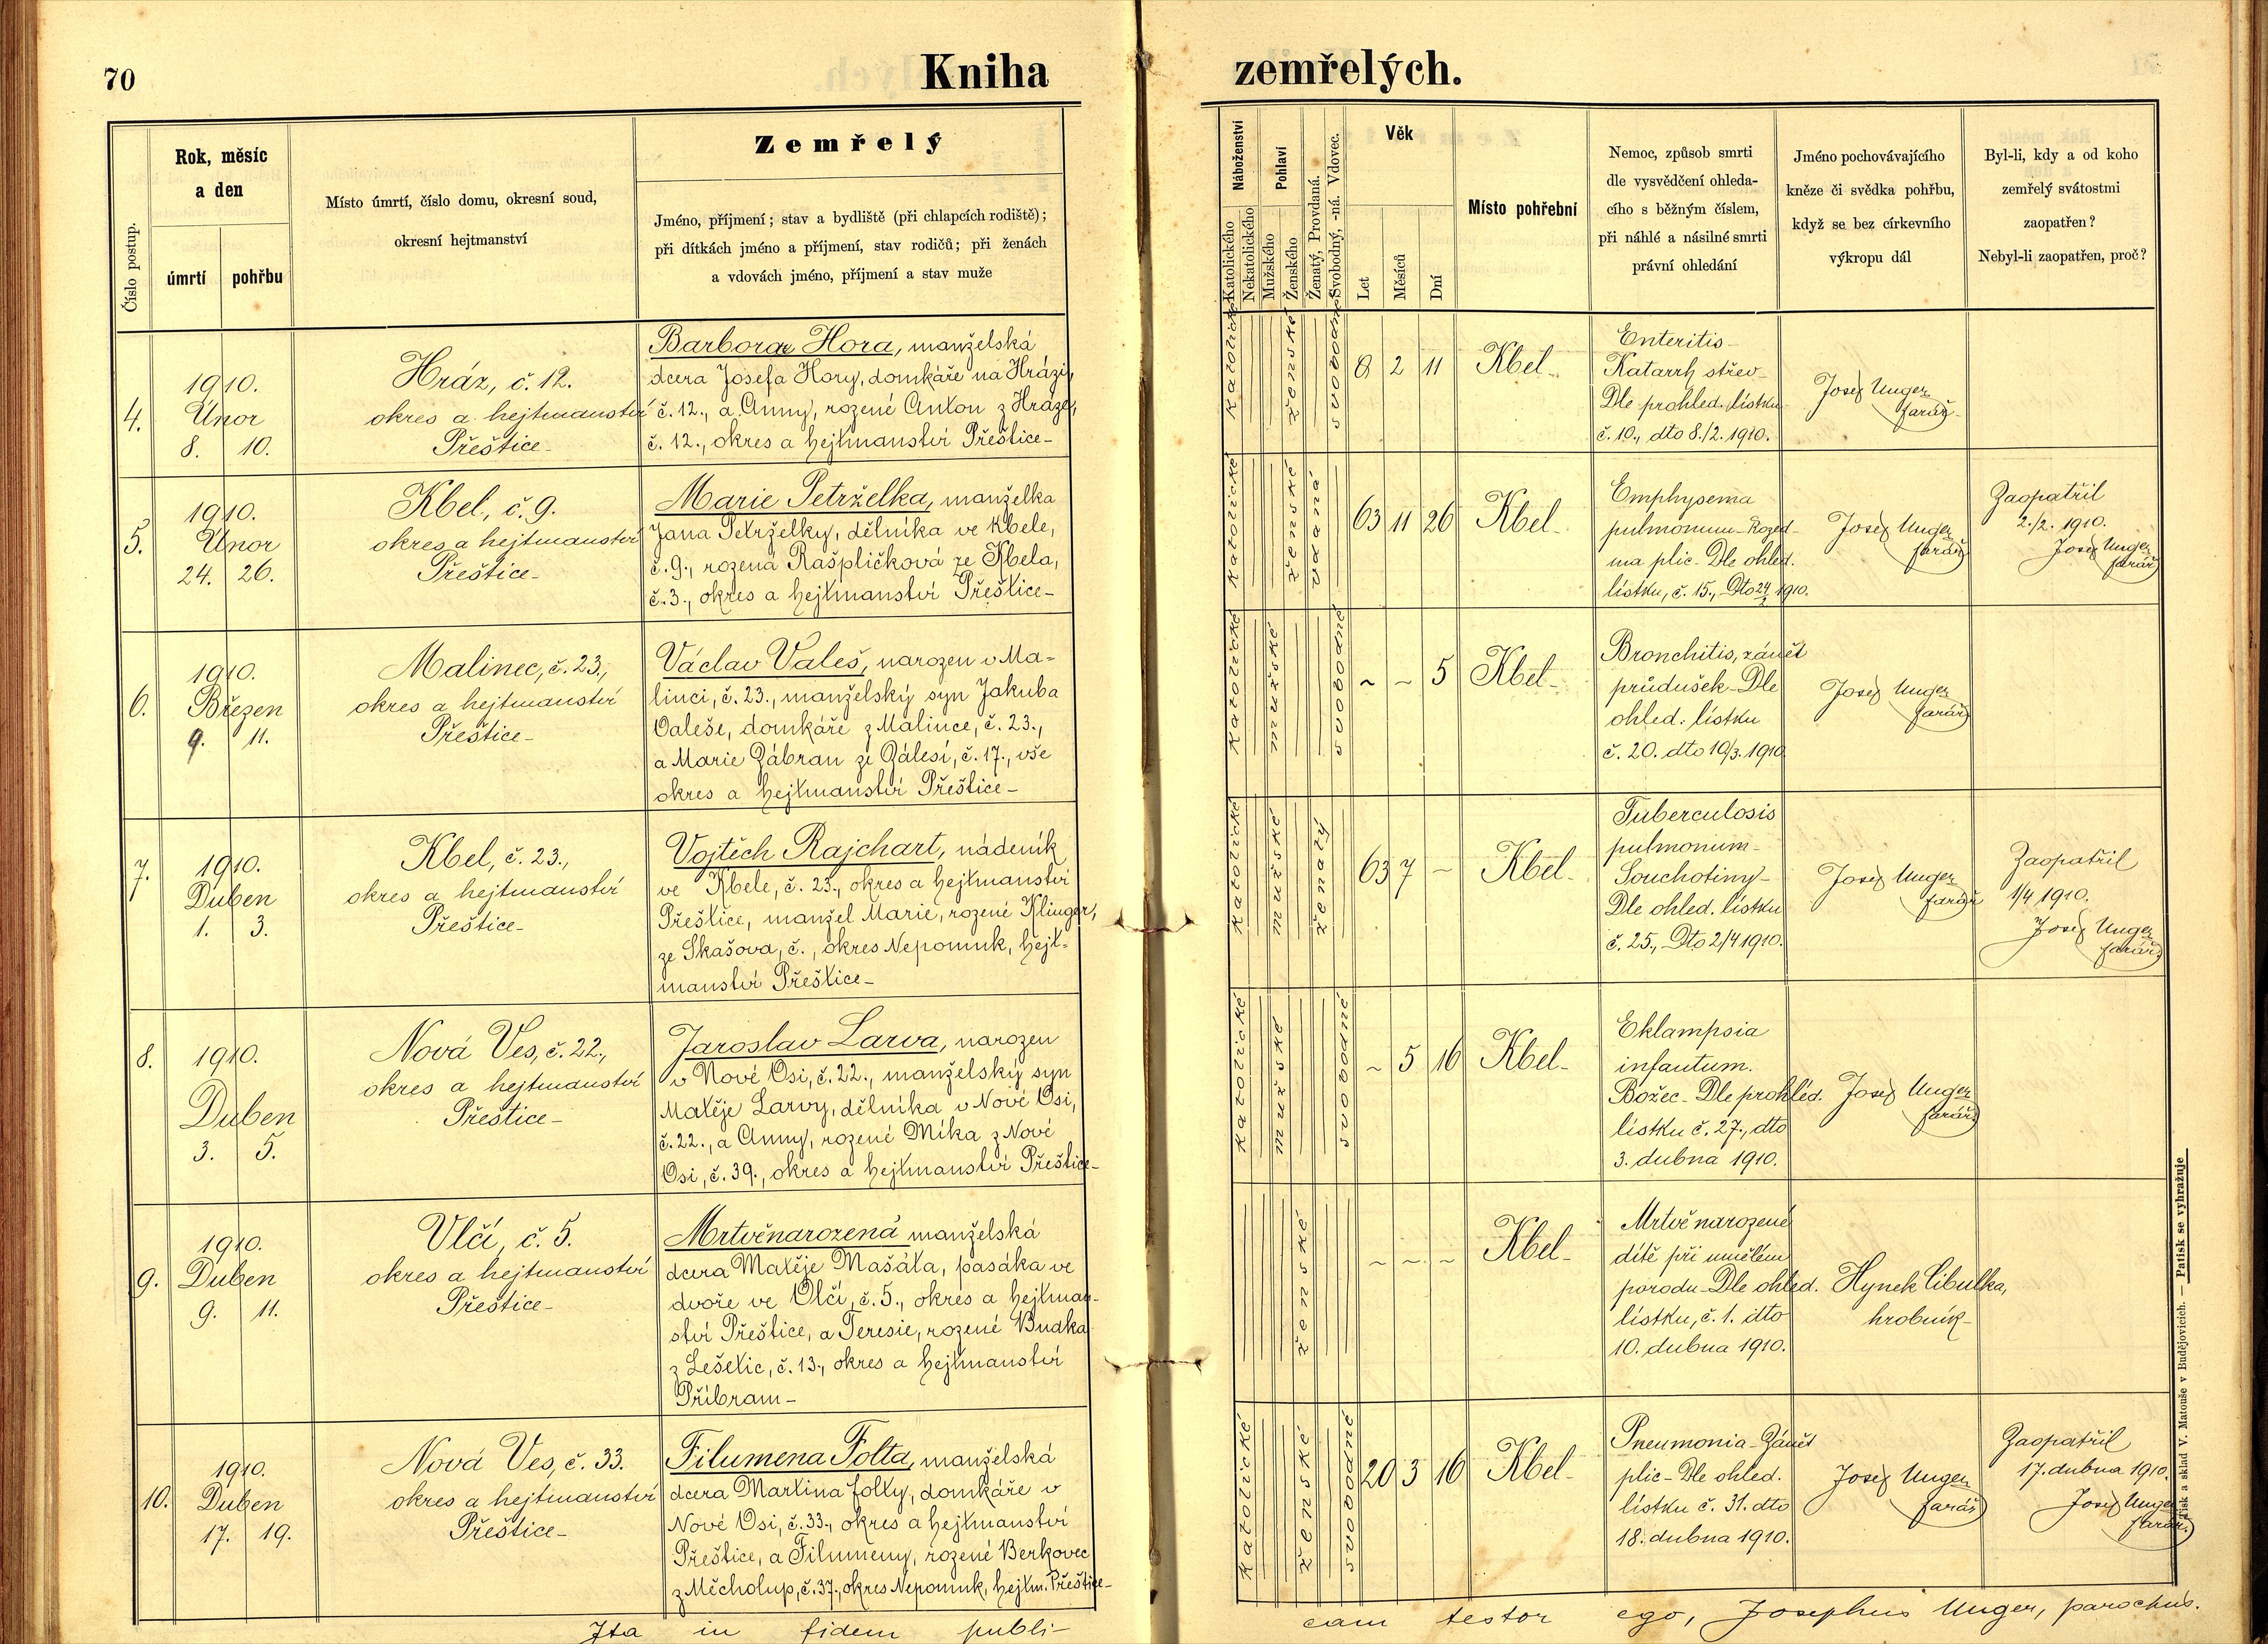 70
Kniha zemřelých.
Číslo postup.
Rok, měsíc
a den
úmrtí
pohřbu
Místo úmrtí, číslo domu, okresní soud,
okresní hejtmanství
Zemřelý
Jméno, příjmení; stav a bydliště (při chlapcích rodiště);
při dítkách jméno a příjmení, stav rodičů; při ženách
a vdovách jméno, příjmení a stav muže
Náboženství
Katolického
Nekatolického
Pohlaví
Mužského
Ženského
Ženatý, Provdaná.
Svobodný, -ná. Vdovec.
Věk
Let
Měsíců
Dní
Místo pohřební
Nemoc, způsob smrti
dle vysvědčení ohleda-
cího s běžným číslem,
při náhlé a násilné smrti
právní ohledání
Jméno pochovávajícího
kněze či svědka pohřbu,
když se bez církevního
výkropu dál
Byl-li, kdy a od koho
zemřelý svátostmi
zaopatřen?
Nebyl-li zaopatřen, proč?
4.
1910.
Únor
8. 10.
Hráz, č. 12.
okres a hejtmanství
Přeštice-
Barbora Hora, manželská
dcera Josefa Hory, domkáře na Hrázi,
č. 12., a Anny, rozené Anton z Hráze,
č. 12., okres a hejtmanství Přeštice-
katolické
ženské
svobodné
8 2 11
Kbel-
Enteritis-
Katarrh střev-
Dle prohled. lístku
č. 10., dto 8./2. 1910.
Josef Unger
farář-
5.
1910.
Únor
24. 26.
Kbel, č. 9.
okres a hejtmanství
Přeštice-
Marie Petrželka, manželka
Jana Petrželky, dělníka ve Kbele,
č. 9., rozená Rašpličková ze Kbela,
č. 3., okres a hejtmanství Přeštice-
katolické
ženské
vdaná
63 11 26
Kbel-
Emphysema
pulmonum-Rozed-
ma plic-Dle ohled.
lístku, č. 15., Dto 24/2 1910.
Josef Unger
farář
Zaopatřil
2./2. 1910.
Josef Unger
farář
6.
1910.
Březen
9. 11.
Malinec, č. 23.,
okres a hejtmanství
Přeštice-
Václav Valeš, narozen v Ma-
linci, č. 23., manželský syn Jakuba
Valeše, domkáře z Malince, č. 23.,
a Marie Zábran ze Zálesí, č. 17., vše
okres a hejtmanství Přeštice-
katolické
mužské
svobodné
~ ~ 5
Kbel-
Bronchitis, zánět
průdušek-Dle
ohled. lístku
č. 20. dto 10/3. 1910.
Josef Unger
farář
7.
1910.
Duben
1. 3.
Kbel, č. 23.,
okres a hejtmanství
Přeštice-
Vojtěch Rajchart, nádeník
ve Kbele, č. 23., okres a hejtmanství
Přeštice, manžel Marie, rozené Klinger,
ze Skašova, č., okres Nepomuk, hejt-
manství Přeštice-
katolické
mužské
ženatý
63 7 ~
Kbel-
Tuberculosis
pulmonum-
Souchotiny-
Dle ohled. lístku
č. 25., Dto 2/4 1910.
Josef Unger
farář
Zaopatřil
1/4 1910.
Josef Unger
farář
8.
1910.
Duben
3. 5.
Nová Ves, č. 22.,
okres a hejtmanství
Přeštice-
Jaroslav Larva, narozen
v Nové Vsi, č. 22., manželský syn
Matěje Larvy, dělníka v Nové Vsi,
č. 22., a Anny, rozené Míka z Nové
Vsi, č. 39., okres a hejtmanství Přeštice-
katolické
mužské
svobodné
~ 5 16
Kbel-
Eklampsia
infantum.
Božec-Dle prohléd.
lístku č. 27., dto
3. dubna 1910.
Josef Unger
farář
9.
1910.
Duben
9. 11.
Vlčí, č. 5.
okres a hejtmanství
Přeštice-
Mrtvěnarozená manželská
dcera Matěje Mašáta, pasáka ve
dvoře ve Vlčí, č. 5., okres a hejtman-
ství Přeštice, a Teresie, rozené Budka
z Lešetic, č. 13., okres a hejtmanství
Příbram-
ženské
~ ~ ~
Kbel-
Mrtvě narozené
dítě při umělém
porodu-Dle ohled.
lístku, č. 1. dto
10. dubna 1910.
Hynek Cibulka,
hrobník-
10.
1910.
Duben
17. 19.
Nová Ves, č. 33.
okres a hejtmanství
Přeštice-
Filumena Folta, manželská
dcera Martina Folty, domkáře v
Nové Vsi, č. 33., okres a hejtmanství
Přeštice, a Filumeny, rozené Berkovec
z Měcholup, č. 37., okres Nepomuk, hejtm. Přeštice-
katolické
ženské
svobodné
20 3 16
Kbel-
Pneumonia-Zánět
plic-Dle ohled.
lístku č. 31. dto
18. dubna 1910.
Josef Unger
farář
Zaopatřil
17. dubna 1910.
Josef Unger
farář.
Ita in fidem publi-
cam testor ego, Josephus Unger, parochus.
Tisk a sklad V. Matouše v Budějovicích. — Patisk se vyhražuje